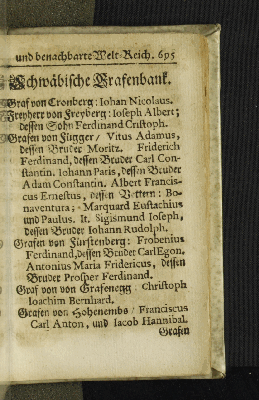 und benachbarte Welt-Reich. 695
Schwäbische Grafenbank.
Graf von Cronberg: Iohan Nicolaus.
Freyherr von Freyberg: Ioseph Albert;
dessen Sohn Ferdinand Cristoph.
Grafen von Fugger/ Vitus Adamus,
dessen Bruder Moritz. Friderich
Ferdinand, dessen Bruder Carl Con-
stantin. Iohann Paris, dessen Bruder
Adam Constantin. Albert Francis-
cus Ernestus, dessen Vettern: Bo-
naventura; Marquard Eustachius
und Paulus. It. Sigismund Ioseph,
dessen Bruder Iohann Rudolph.
Grafen von Fürstenberg: Frobenius
Ferdinand, dessen Bruder Carl Egon.
Antonius Maria Fridericus, dessen
Bruder Prosper Ferdinand.
Graf von von Grafenegg: Christoph
Ioachim Bernhard.
Grafen von Hohenembs/ Franciscus
Carl Anton, und Iacob Hannibal.
Grafen